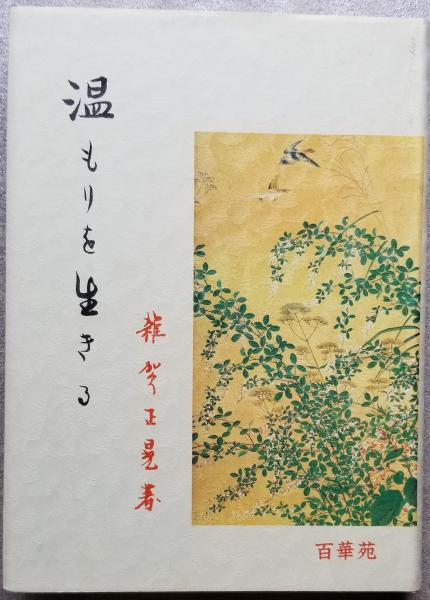 温もりを生きる
雑賀正晃著
百華苑